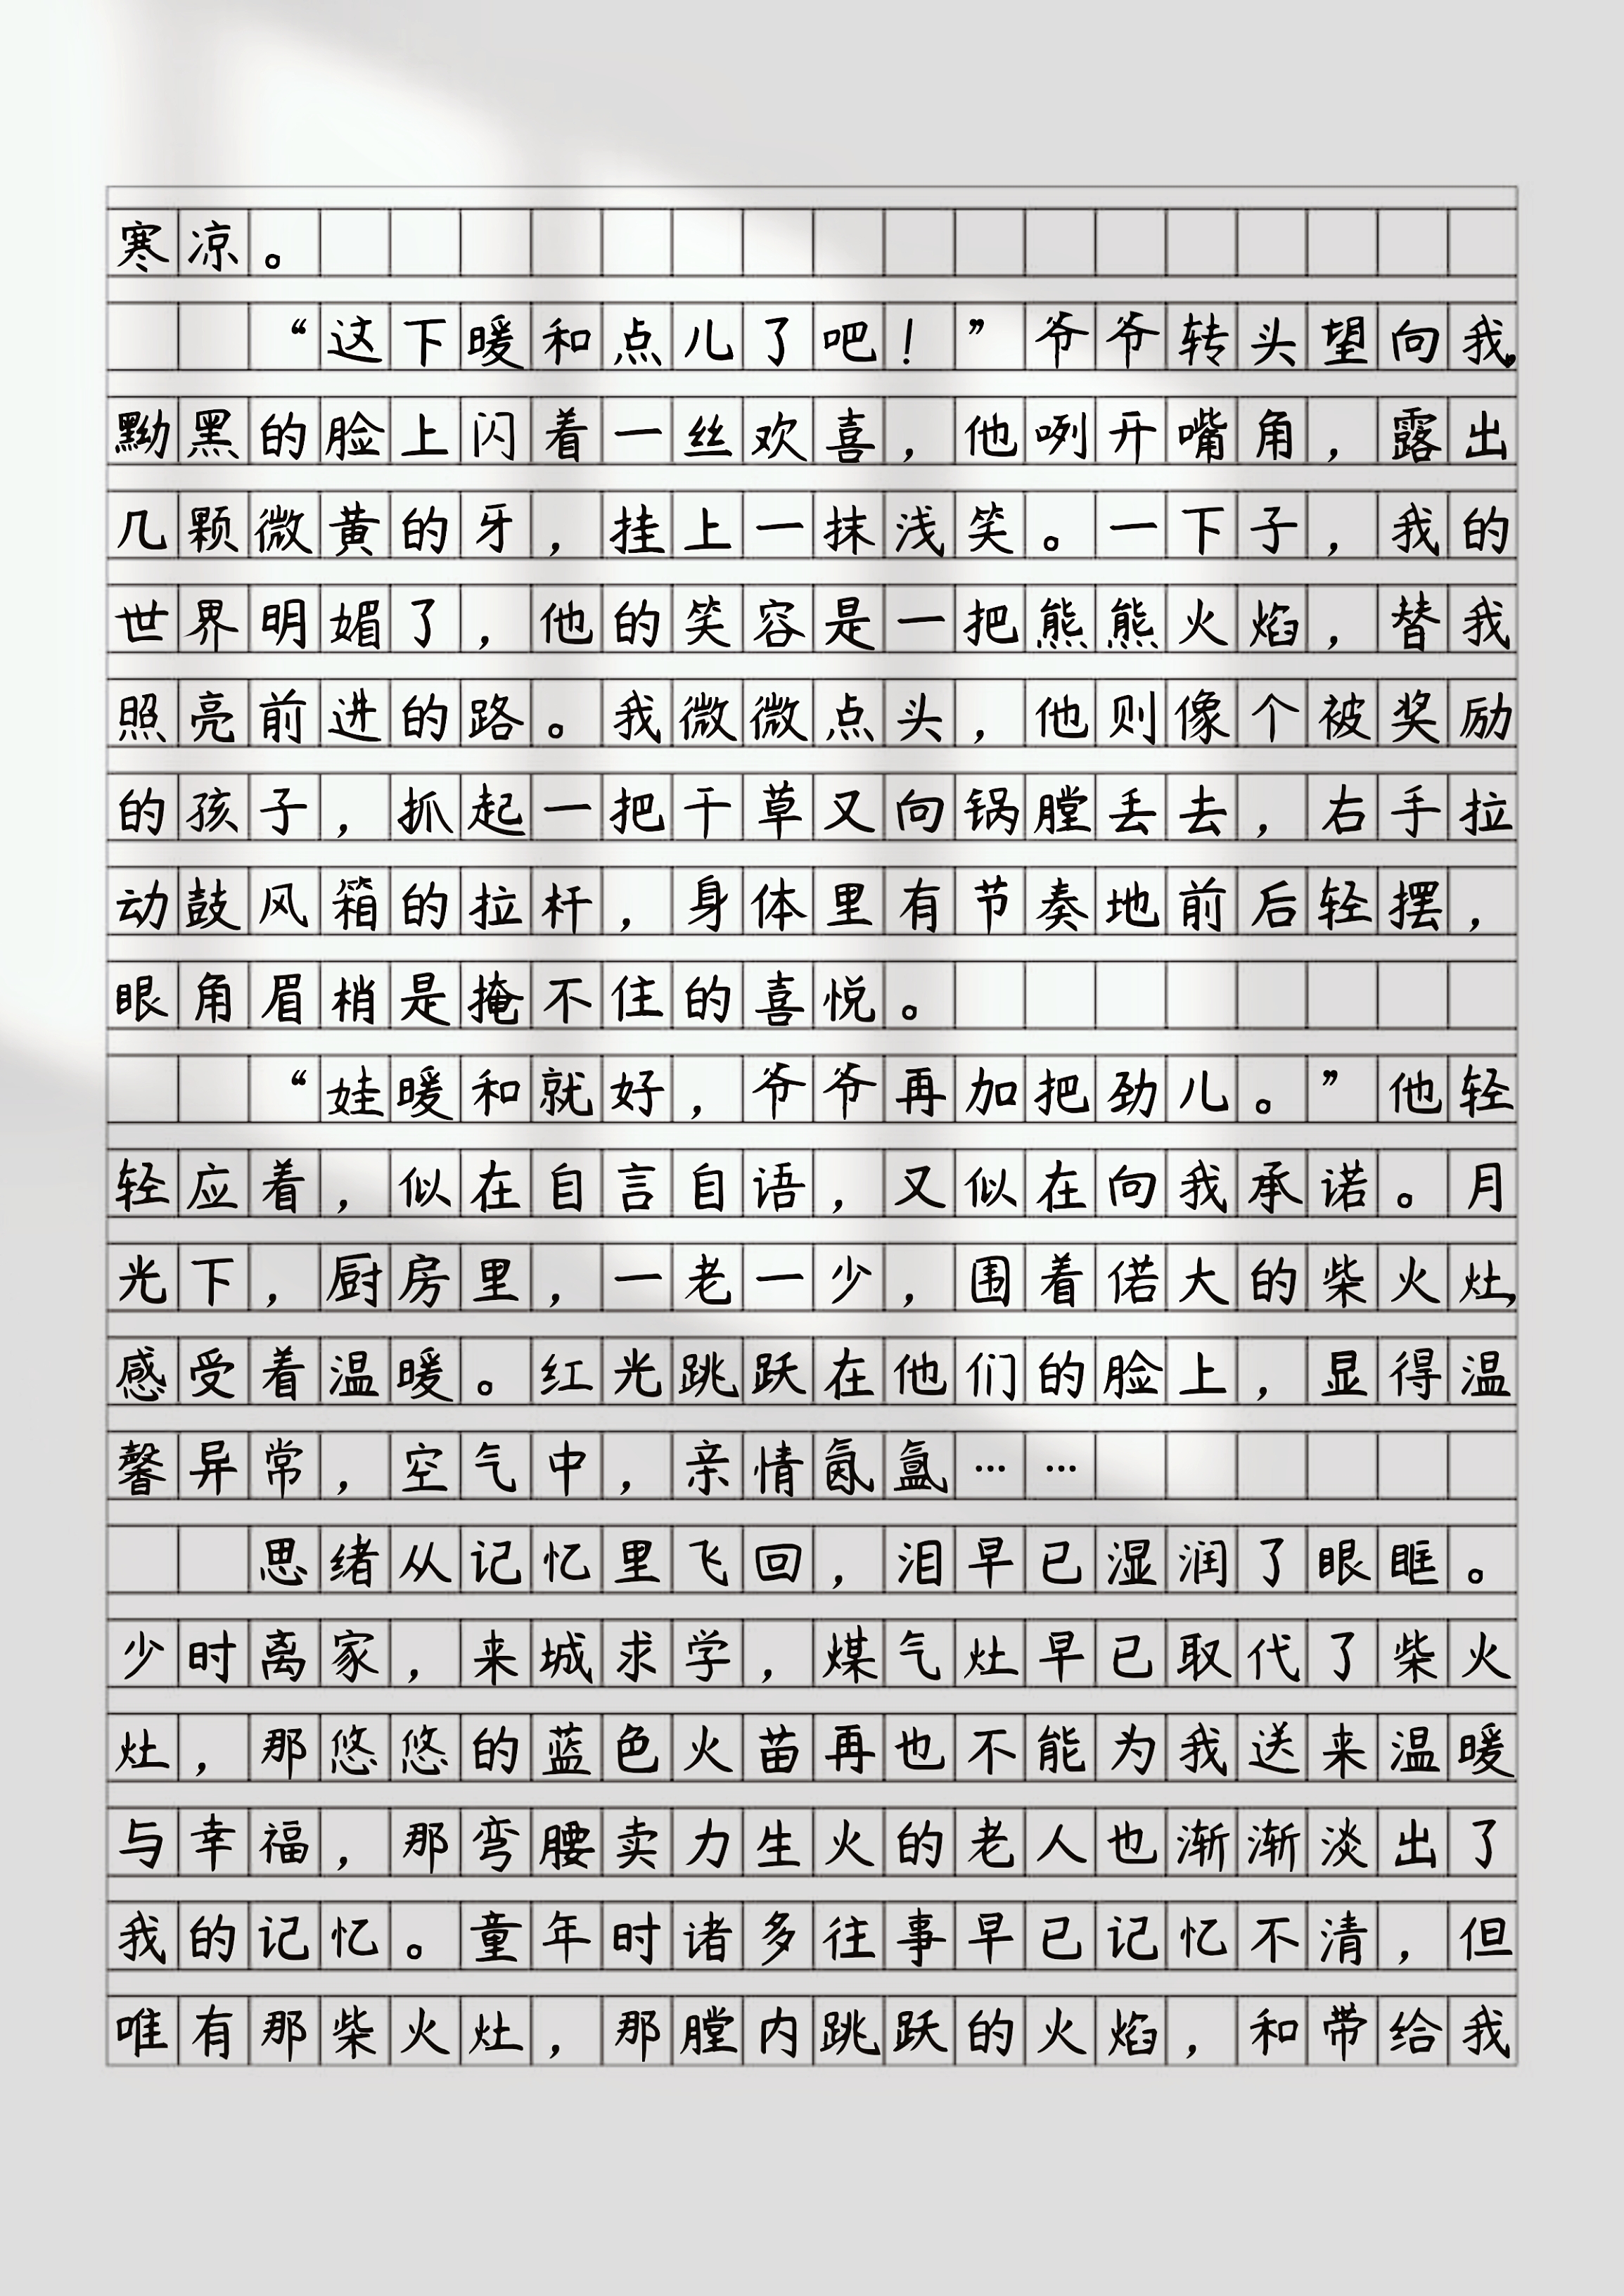 寒凉。
“这下暖和点儿了吧！”爷爷转头望向我，
黝黑的脸上闪着一丝欢喜，他咧开嘴角，露出
几颗微黄的牙，挂上一抹浅笑。一下子，我的
世界明媚了，他的笑容是一把熊熊火焰，替我
照亮前进的路。我微微点头，他则像个被奖励
的孩子，抓起一把干草又向锅膛丢去，右手拉
动鼓风箱的拉杆，身体里有节奏地前后轻摆，
眼角眉梢是掩不住的喜悦。
“娃暖和就好，爷爷再加把劲儿。”他轻
轻应着，似在自言自语，又似在向我承诺。月
光下，厨房里，一老一少，围着偌大的柴火灶，
感受着温暖。红光跳跃在他们的脸上，显得温
馨异常，空气中，亲情氤氲……
思绪从记忆里飞回，泪早已湿润了眼眶。
少时离家，来城求学，煤气灶早已取代了柴火
灶，那悠悠的蓝色火苗再也不能为我送来温暖
与幸福，那弯腰卖力生火的老人也渐渐淡出了
我的记忆。童年时诸多往事早已记忆不清，但
唯有那柴火灶，那膛内跳跃的火焰，和带给我